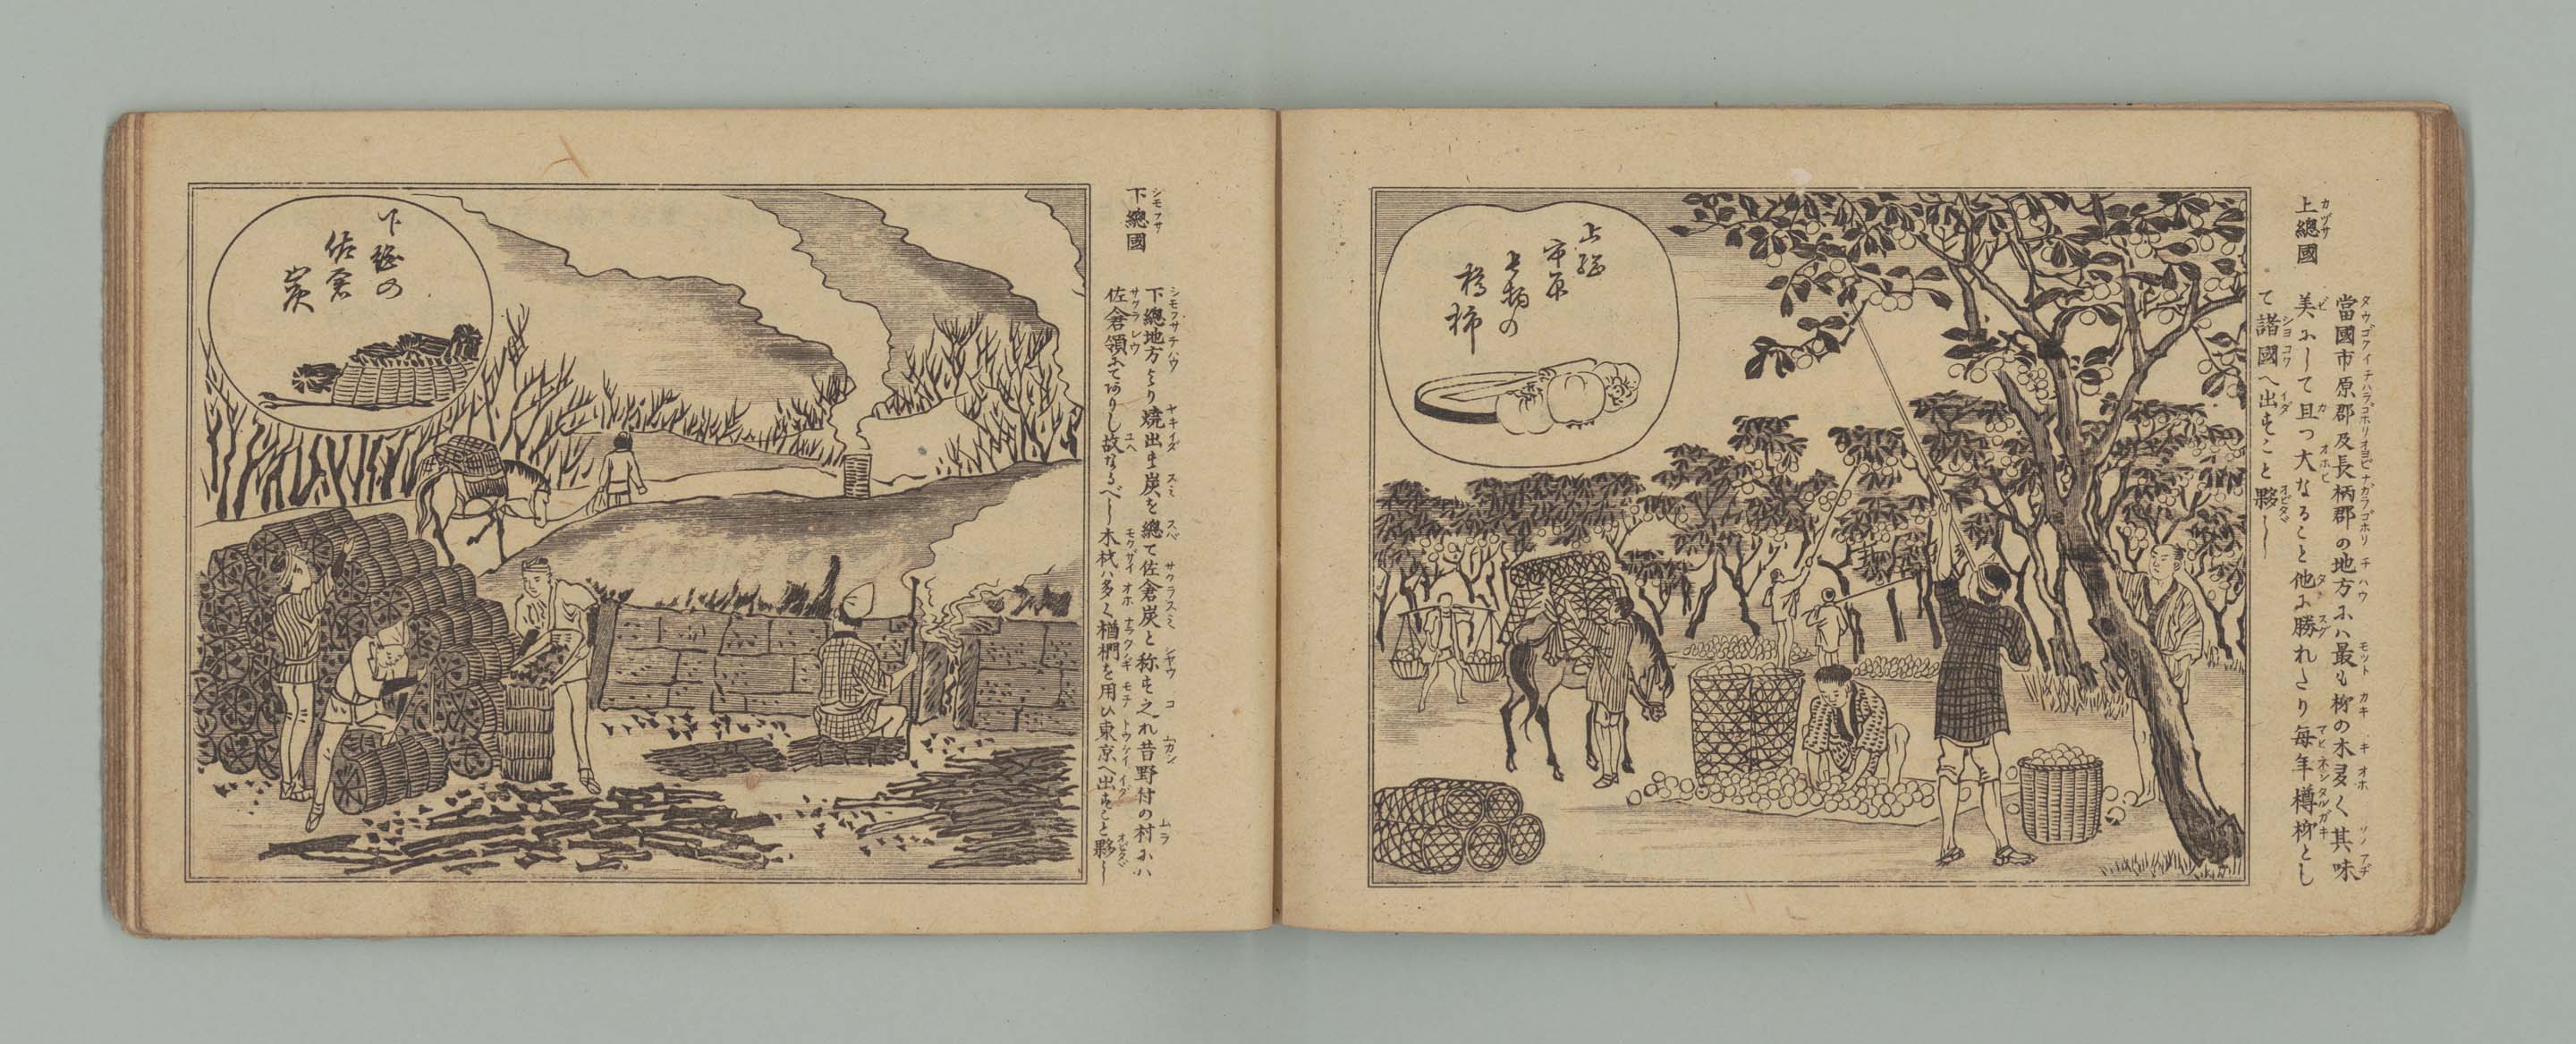 上總國
當國市原郡及長柄郡の地方ふハ最も柹の木多く其味
美ふして且つ大なること他ふ勝れたり毎年樽柹とし
て諸國へ出すこと夥し
上総
市原
長柄の
樽柿
下總國
下總地方より燒出す炭を總て佐倉炭と称す之れ昔野付の村ふハ
佐倉領にてありし故なるべし木材ハ多く楢椚を用ひ東京へ出すこと夥し
下総の
佐倉
炭